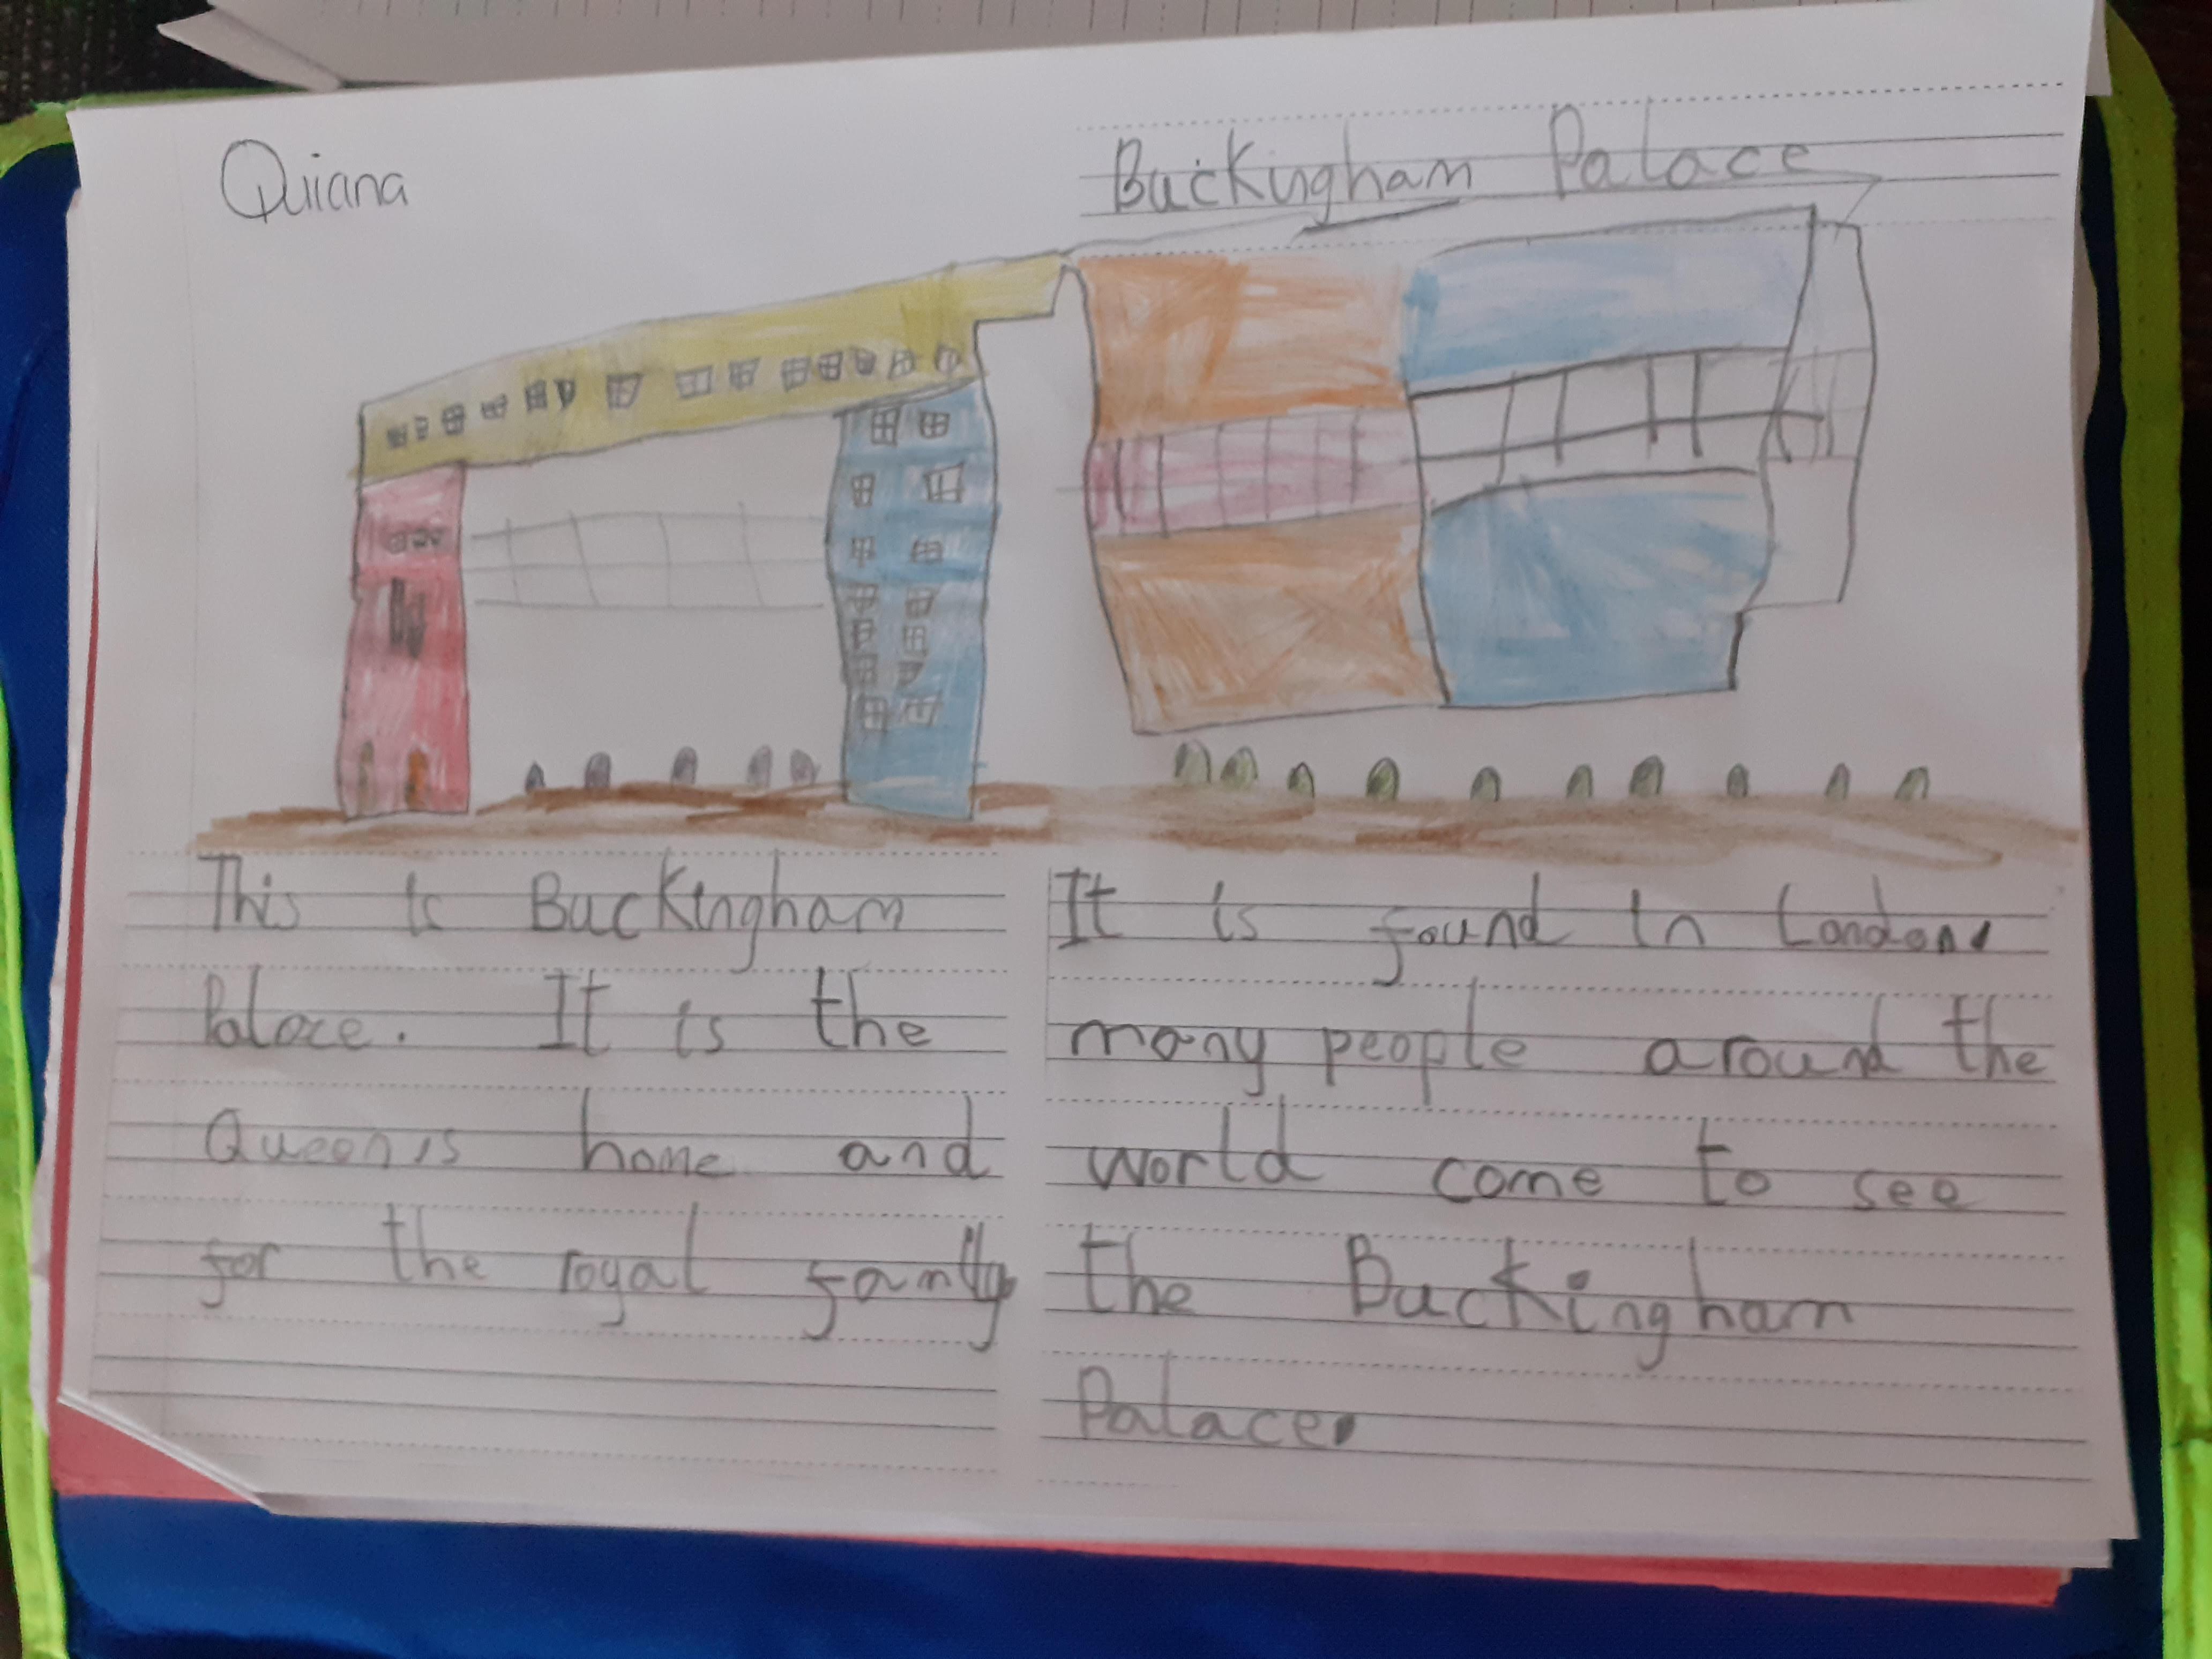 Quiana
Buckingham Palace
This is Buckingham
Palace. It is the
Queen's home and
for the royal family
It is found in London.
many people around the
world come to see
the Buckingham
Palace.